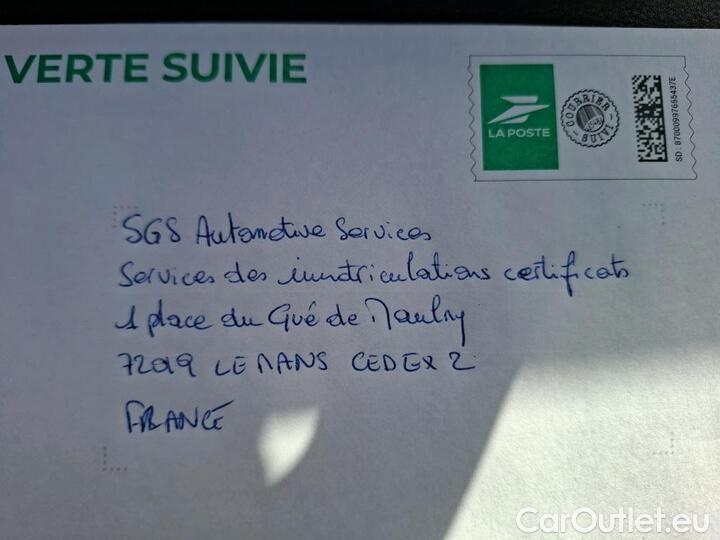 VERTE SUIVIE
LA POSTE
COURRIER
SUIVI
SD : 87000997665437E
SGS Automotive Services
Services des immatriculations certificats
1 place du Gué de Maulny
72019 LE MANS CEDEX 2
FRANCE
CarOutlet.eu